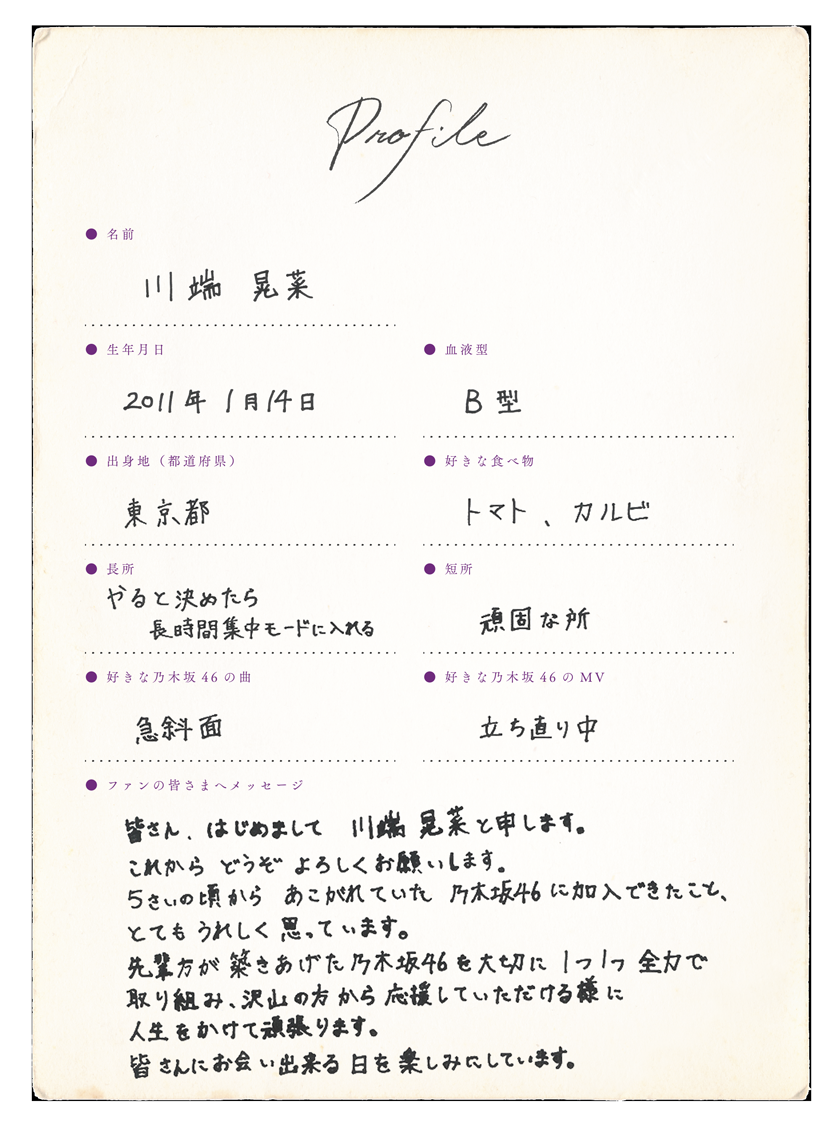 Profile
名前
川端 晃菜
生年月日
2011年 1月14日
血液型
B型
出身地（都道府県）
東京都
好きな食べ物
トマト、カルビ
長所
やると決めたら
長時間集中モードに入れる
短所
頑固な所
好きな乃木坂46の曲
急斜面
好きな乃木坂46のMV
立ち直り中
ファンの皆さまへメッセージ
皆さん、はじめまして 川端 晃菜と申します。
これから どうぞ よろしくお願いします。
5さいの頃から あこがれていた 乃木坂46に加入できたこと、
とても うれしく 思っています。
先輩方が 築きあげた乃木坂46を大切に 1つ1つ 全力で
取り組み、沢山の方から 応援していただける様に
人生をかけて頑張ります。
皆さんにお会い出来る 日を楽しみにしています。